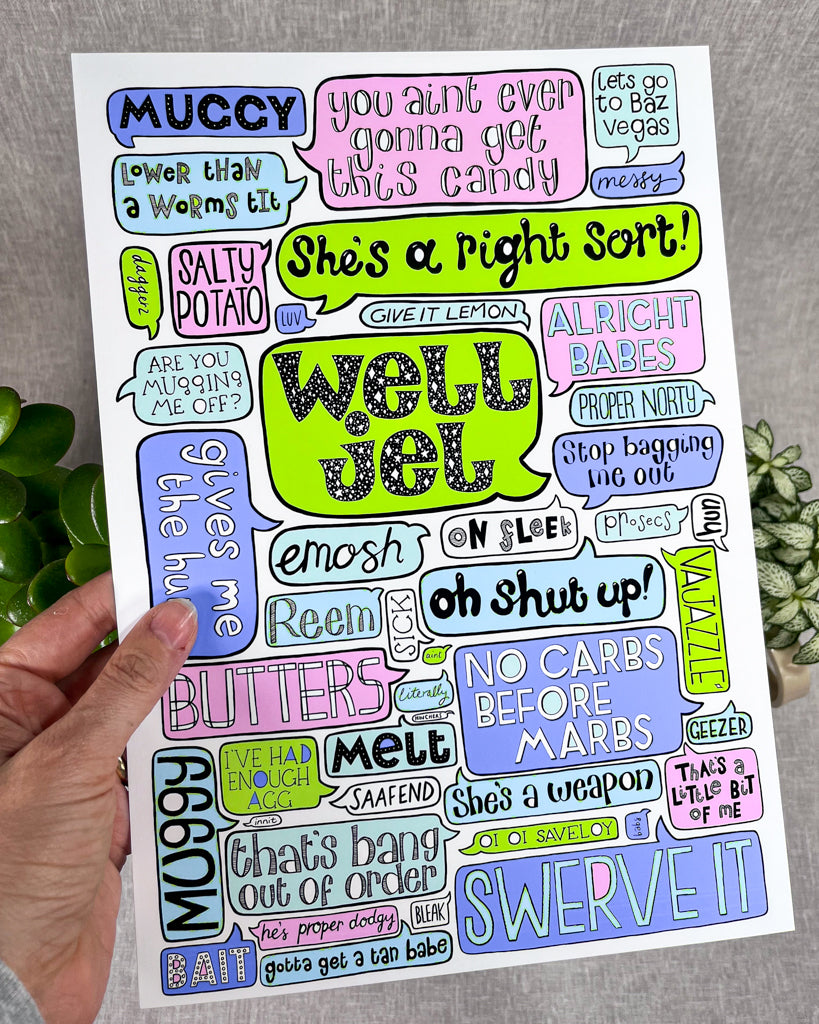 MUGGY
you aint ever
gonna get
this candy
lets go
to Baz
vegas
LOWER tHAN
a WORMS tIt
messy
She's a right sort!
daggerz
SALTY
POTATO
LUV
GIVE IT LEMON
ALRIGHT
BABES
ARE YOU
MUGGING
ME OFF?
well
jel
PROPER NORTY
Stop bagging
me out
gives me
the hu
emosh
ON fLEEK
prosecs
hun
Reem
SICK
oh shut up!
VAJAZZLE
aint
BUTTERS
literally
MUNCHERS
NO CARBS
BEFORE
MARBS
GEEZER
MUGGY
I'VE HAD
ENOUGH
AGG
melt
SAAFEND
She's a weapon
THAt'S a
LittLE Bit
OF ME
innit
that's bang
out of order
OI OI SAVELOY
bebs
SWERVE IT
he's proper dodgy
BLEAK
BAIT
gotta get a tan babe